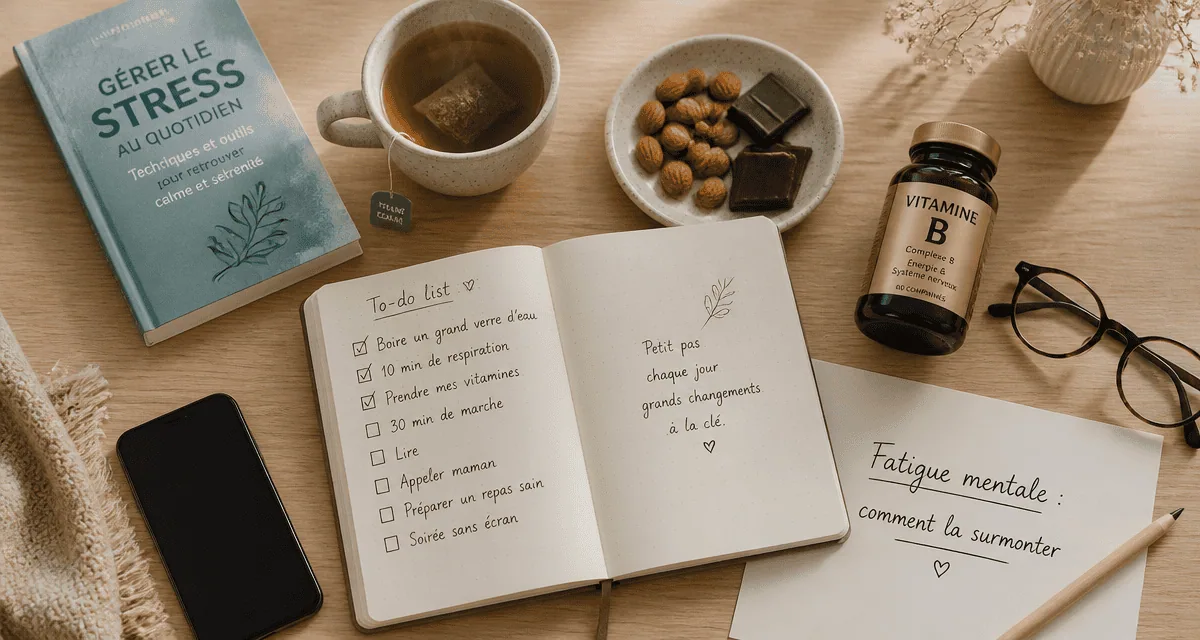 GÉRER LE
STRESS
AU QUOTIDIEN
Techniques et outils
pour retrouver
calme et sérénité
To-do list ♡
☑ Boire un grand verre d'eau
☑ 10 min de respiration
☑ Prendre mes vitamines
☐ 30 min de marche
☐ Lire
☐ Appeler maman
☐ Préparer un repas sain
☐ Soirée sans écran
Petit pas
chaque jour
grands changements
à la clé.
♡
VITAMINE
B
Complexe B
Énergie &
Système nerveux
60 COMPRIMÉS
Fatigue mentale :
comment la surmonter
♡